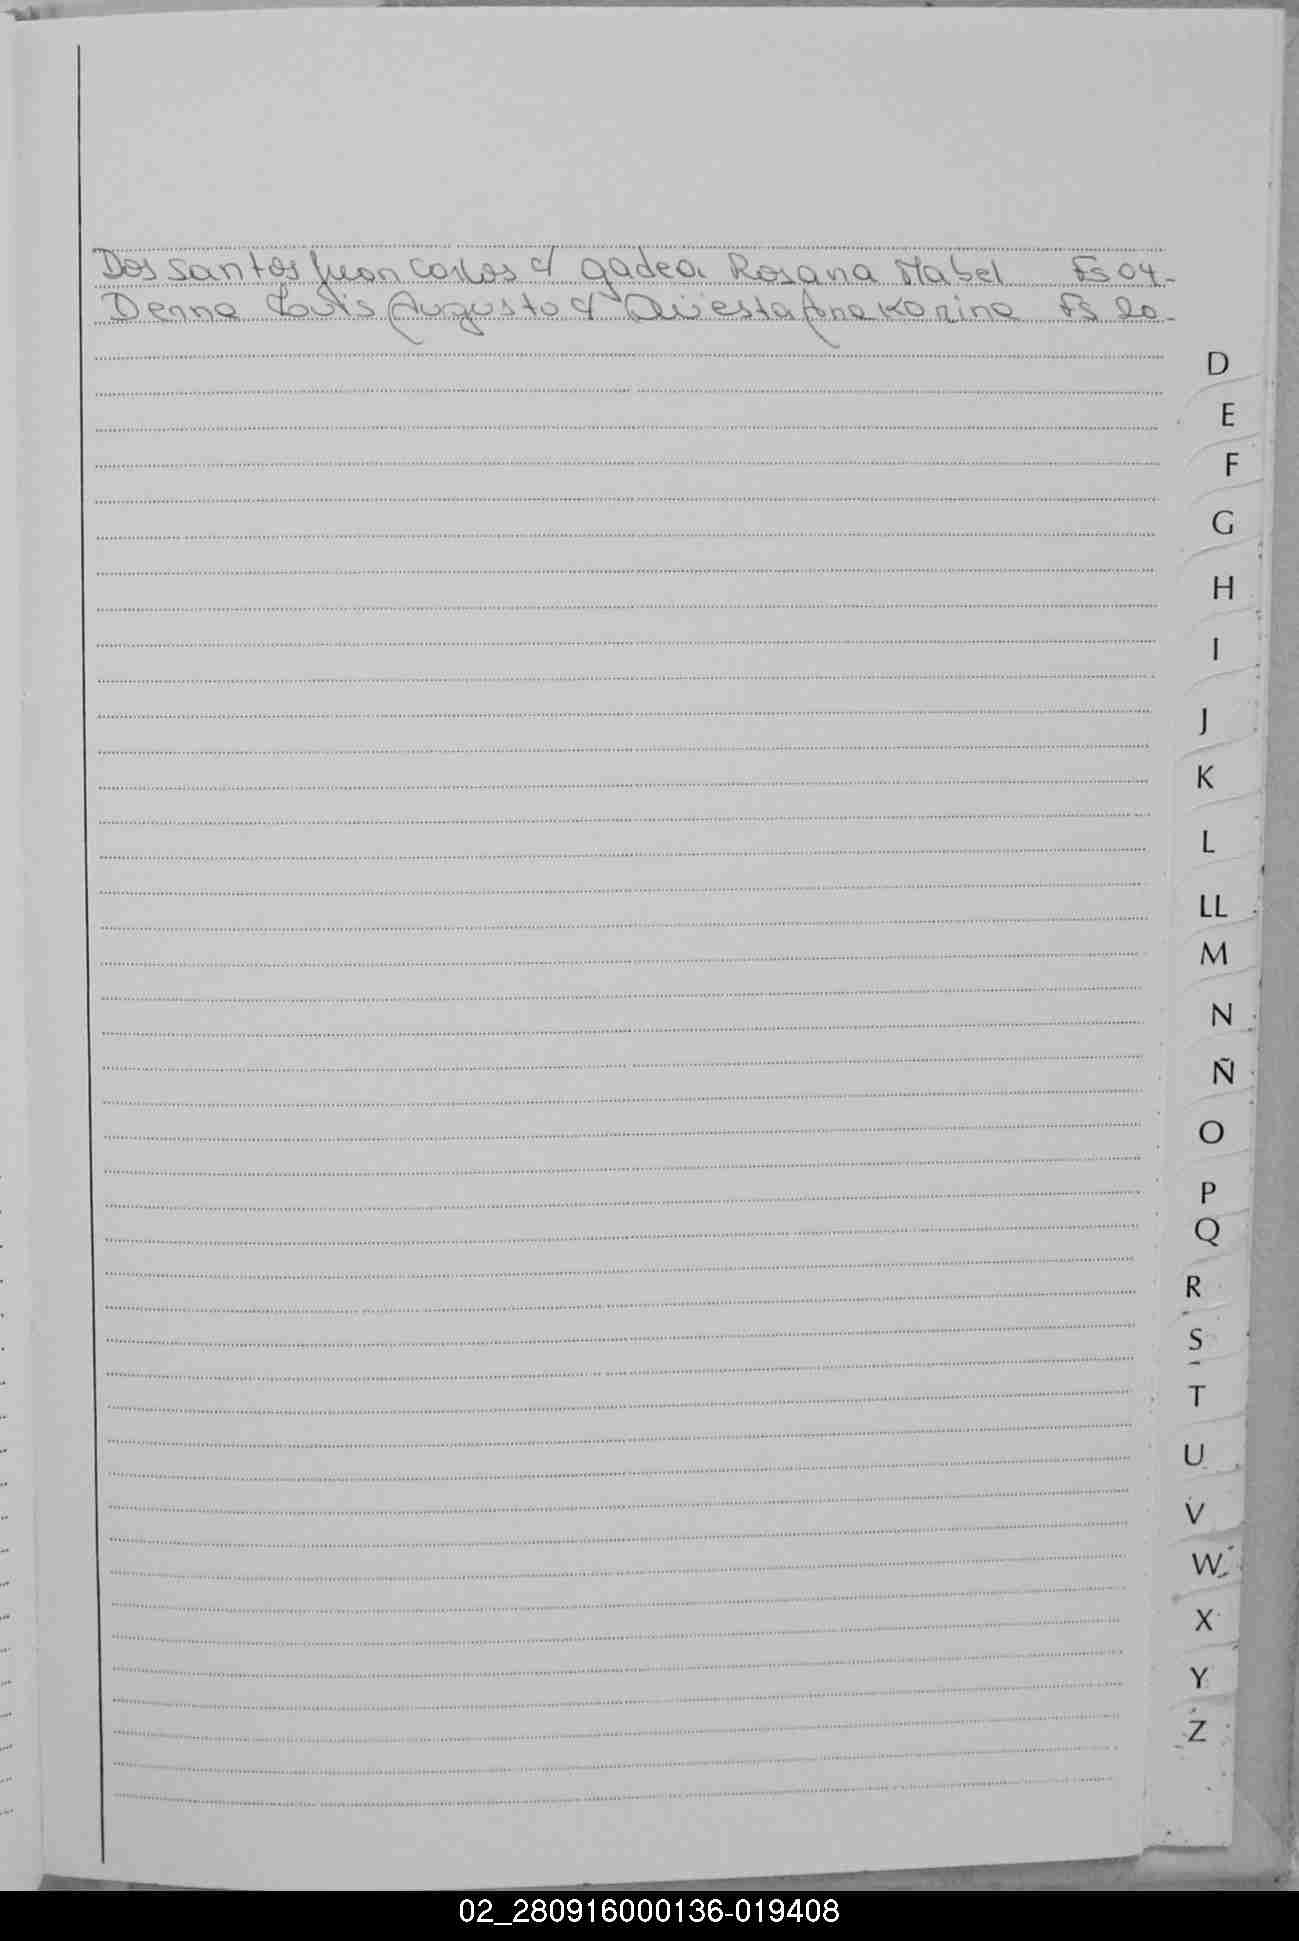 Dos santos Juan Carlos c/ gadea Rosana Mabel Fs 04-
Denna Louis Augusto c/ Ana Karina Fs 20-
D
E
F
G
H
I
J
K
L
LL
M
N
Ñ
O
P
Q
R
S
T
U
V
W
X
Y
Z
02_280916000136-019408